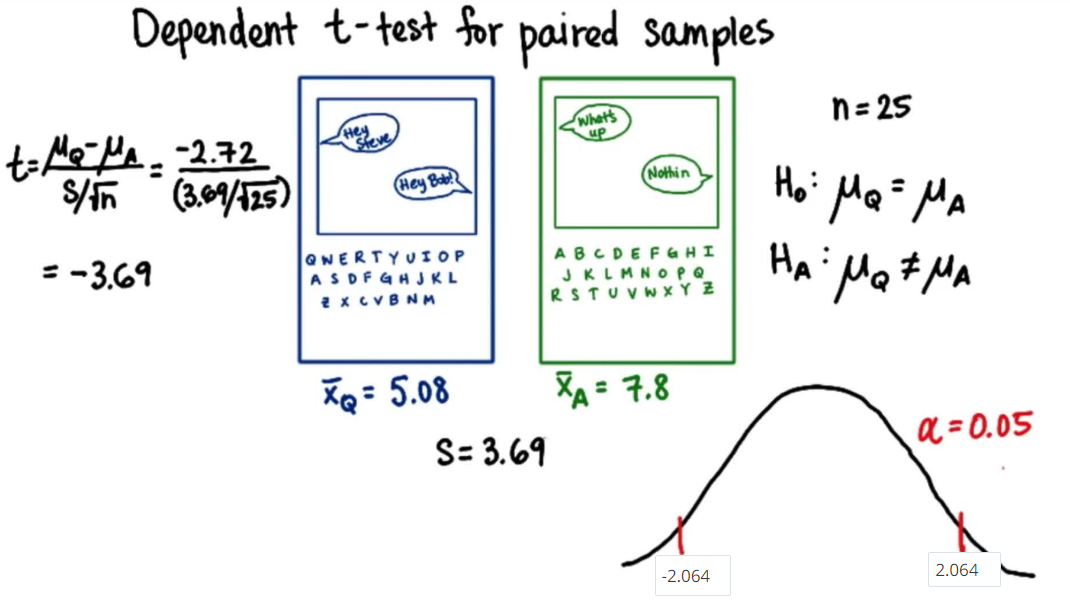 Dependent t-test for paired samples
t = μQ - μA / S/√n = -2.72 / (3.69/√25)
= -3.69
Hey Steve
Hey Bob!
QWERTYUIOP
ASDFGHJKL
ZXCVBNM
x̄Q = 5.08
What's up
Nothin
ABCDEFGHI
JKLMNOPQ
RSTUVWXYZ
x̄A = 7.8
S = 3.69
n = 25
H₀: μQ = μA
HA: μQ ≠ μA
α = 0.05
-2.064
2.064